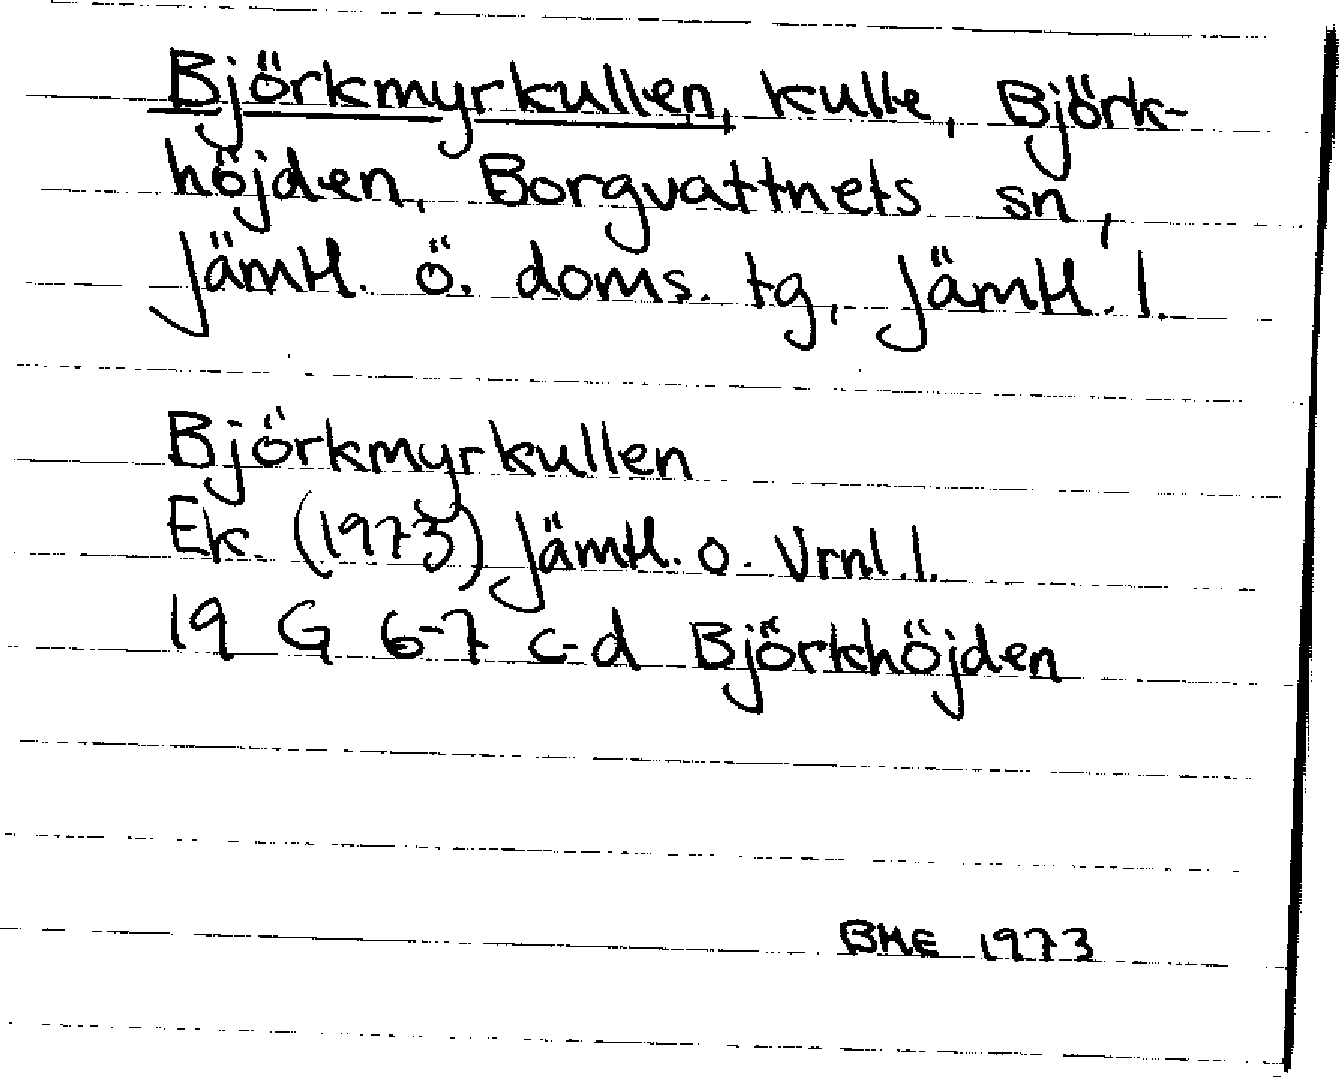 Björkmyrkullen, kulle, Björk-
höjden, Borgvattnets sn,
Jämtl. ö. doms. tg, Jämtl. l.
Björkmyrkullen
Ek. (1973) Jämtl. o. Vrnl. l.
19 G 6-7 c-d Björkhöjden
BME 1973